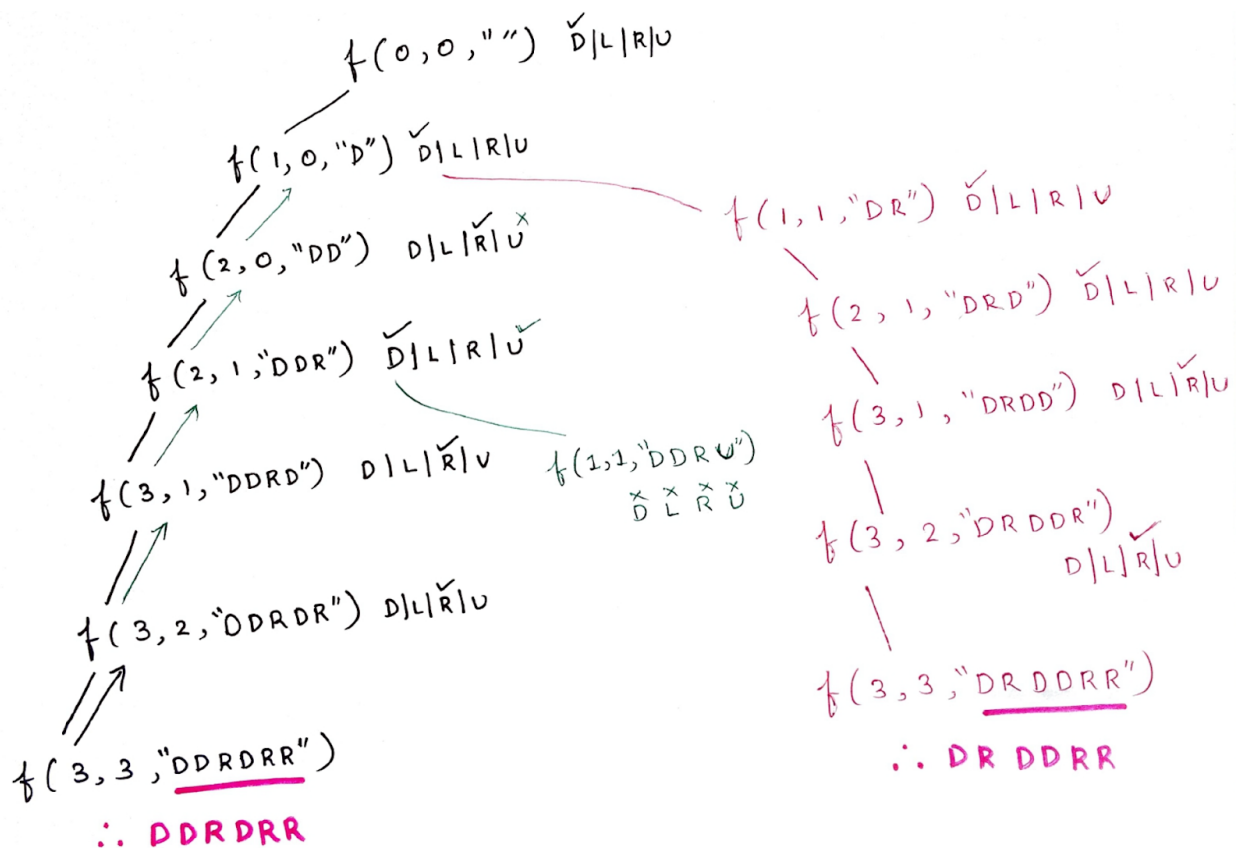 f(0,0,"") D|L|R|U
f(1,0,"D") D|L|R|U
f(2,0,"DD") D|L|R|U
f(2,1,"DDR") D|L|R|U
f(3,1,"DDRD") D|L|R|U
f(1,1,"DDRU")
D L R U
f(3,2,"DDRDR") D|L|R|U
f(3,3,"DDRDRR")
∴ DDRDRR
f(1,1,"DR") D|L|R|U
f(2,1,"DRD") D|L|R|U
f(3,1,"DRDD") D|L|R|U
f(3,2,"DRDDR")
D|L|R|U
f(3,3,"DRDDRR")
∴ DR DDRR